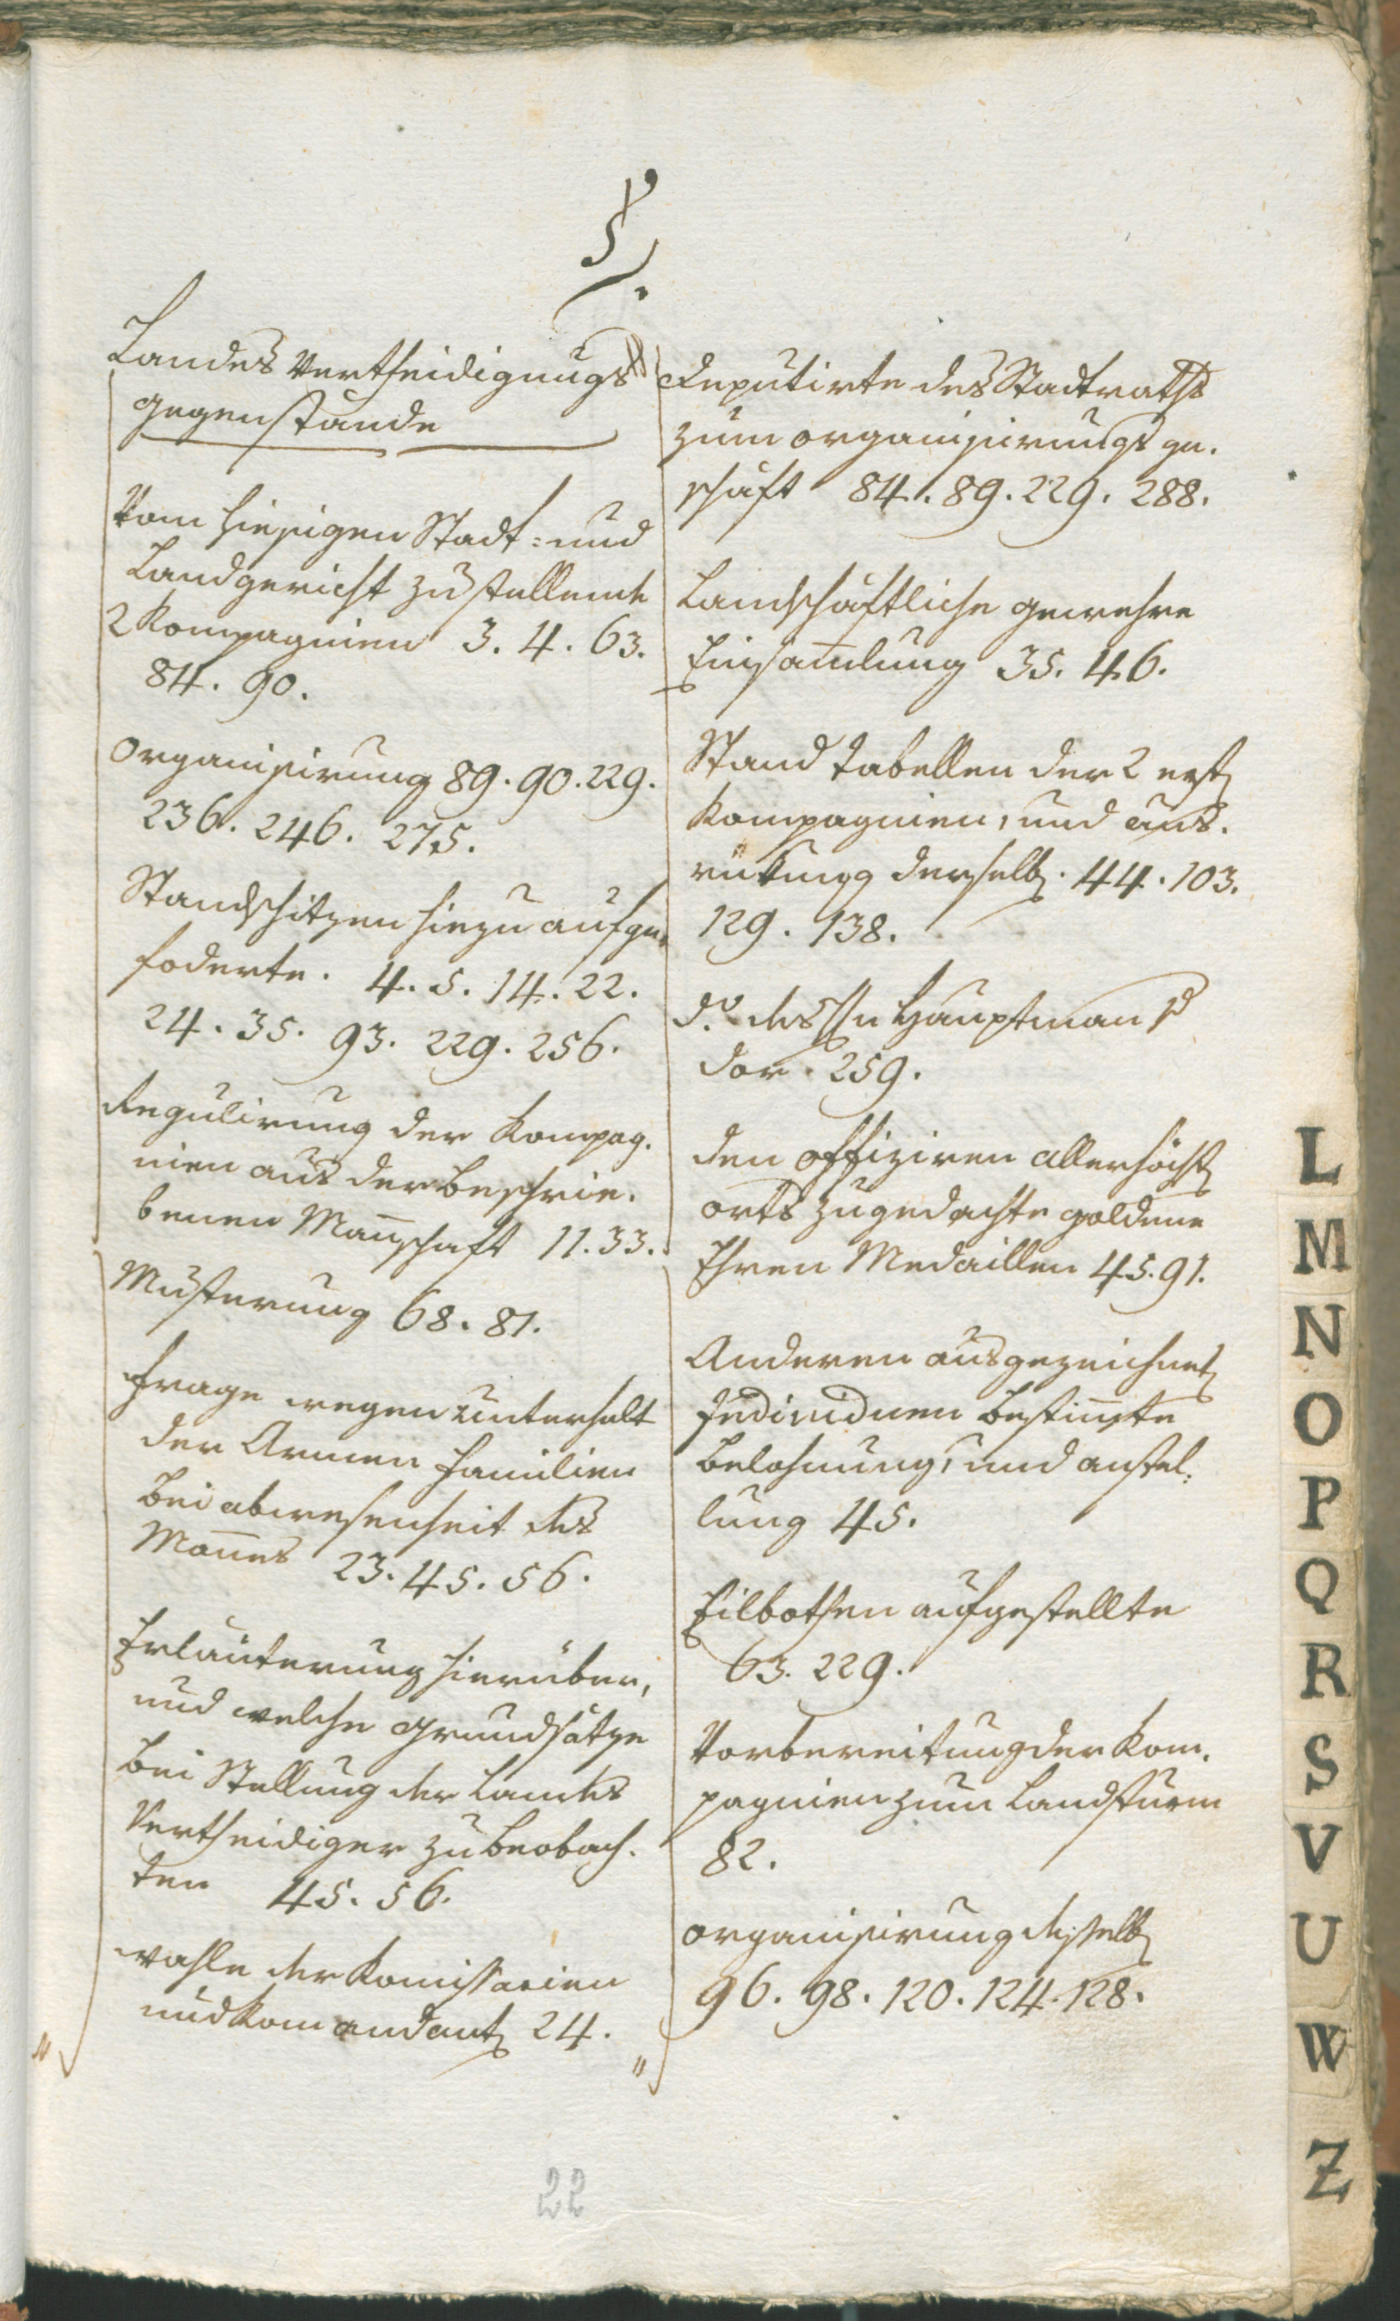 L.
Landes Vertheidigungs
gegenstände
Vom hiesigen Stadt= und
Landgericht zustellende
2 Kompagnien 3. 4. 63.
84. 90.
Organisirung 89. 90. 229.
236. 246. 275.
Standschitzen hiezu aufge.
foderte. 4. 5. 14. 22.
24. 35. 93. 229. 256.
Regulirung der Kompag.
nien aus der beschrie.
benen Mañschaft 11. 33.
Musterung 68. 81.
Frage wegen unterhalt
der Armen Familien
bei abwesenheit des
Mañes 23. 45. 56.
Erläuterung hierüber,
und welche Grundsätze
bei Stellung der Landes
Vertheidiger zu beobach.
ten 45. 56.
Wahle der Komissarien
und Komandant 24.
Deputirte des Stadtraths
zum organisirungs ge.
schäft 84. 89. 229. 288.
Landschäftliche gewehre
Einsam̄lung 35. 46.
Stand tabellen der 2 erst
Kompagnien, und aus.
rükung derselb. 44. 103.
129. 138.
do. des Hauptman
dor. 259.
den offiziren allerhöchst
orts zugedachte goldene
Ehren Medaillen 45. 91.
Anderen ausgezeichnet
Individuen bestim̄te
Belohnung, und anstel:
lung 45.
Eilbothen aufgestellte
63. 229.
Vorbereitung der Kom.
pagnien zum Landsturm
82.
organisirung desselb
96. 98. 120. 124. 128.
22
L
M
N
O
P
Q
R
S
V
U
W
Z